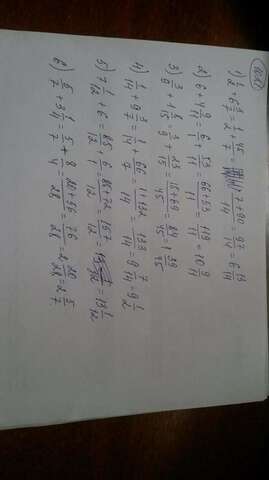 1) 1/2 + 6 3/7 = 1/2 + 45/7 = 7+90/14 = 97/14 = 6 13/14
2) 6 + 4 9/11 = 6/1 + 53/11 = 66+53/11 = 119/11 = 10 9/11
3) 3/9 + 1 8/15 = 3/9 + 23/15 = 15+69/45 = 84/45 = 1 39/45
4) 1/14 + 9 3/7 = 1/14 + 66/7 = 1+132/14 = 133/14 = 9 7/14 = 9 1/2
5) 7 1/12 + 6 = 85/12 + 6/1 = 85+72/12 = 157/12 = 13 1/12
6) 5/7 + = 5/7 + 8/4 = 20+56/28 = 76/28 = 2 20/28 = 2 5/7